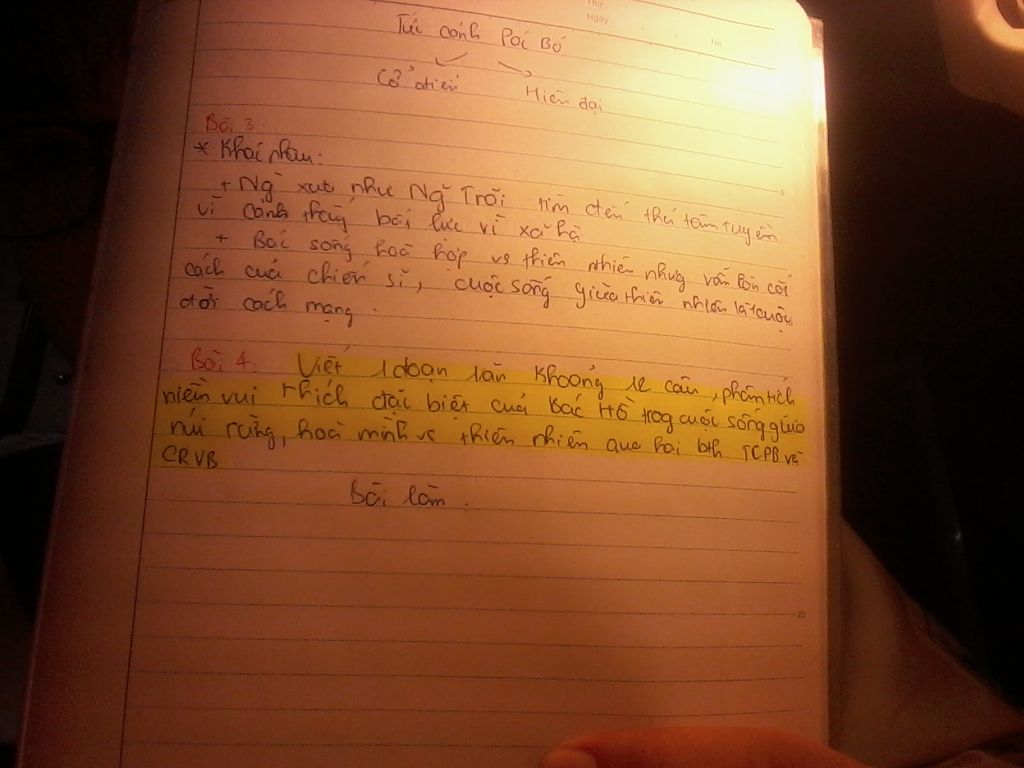 Thứ
Ngày
No.
Tức cảnh Pác Bó
Cổ điển
Hiện đại
Bài 3:
* Khái niệm:
+ Ng xưa như Ng Trãi tìm đến thú lâm tuyền
vì cảnh thấy bất lực vì xã hội
+ Bác sống hoà hợp vs thiên nhiên nhưg vẫn còn cốt
cách của chiến sĩ, cuộc sống giữa thiên nhiên là 1 cuộc
đời cách mạng.
Bài 4. Viết 1 đoạn văn khoảng 12 câu, phân tích
niềm vui thích đặc biệt của Bác Hồ trog cuộc sống giữa
núi rừng, hoà mình vs thiên nhiên qua hai bth TCPB và
CRVB
Bài làm.
20